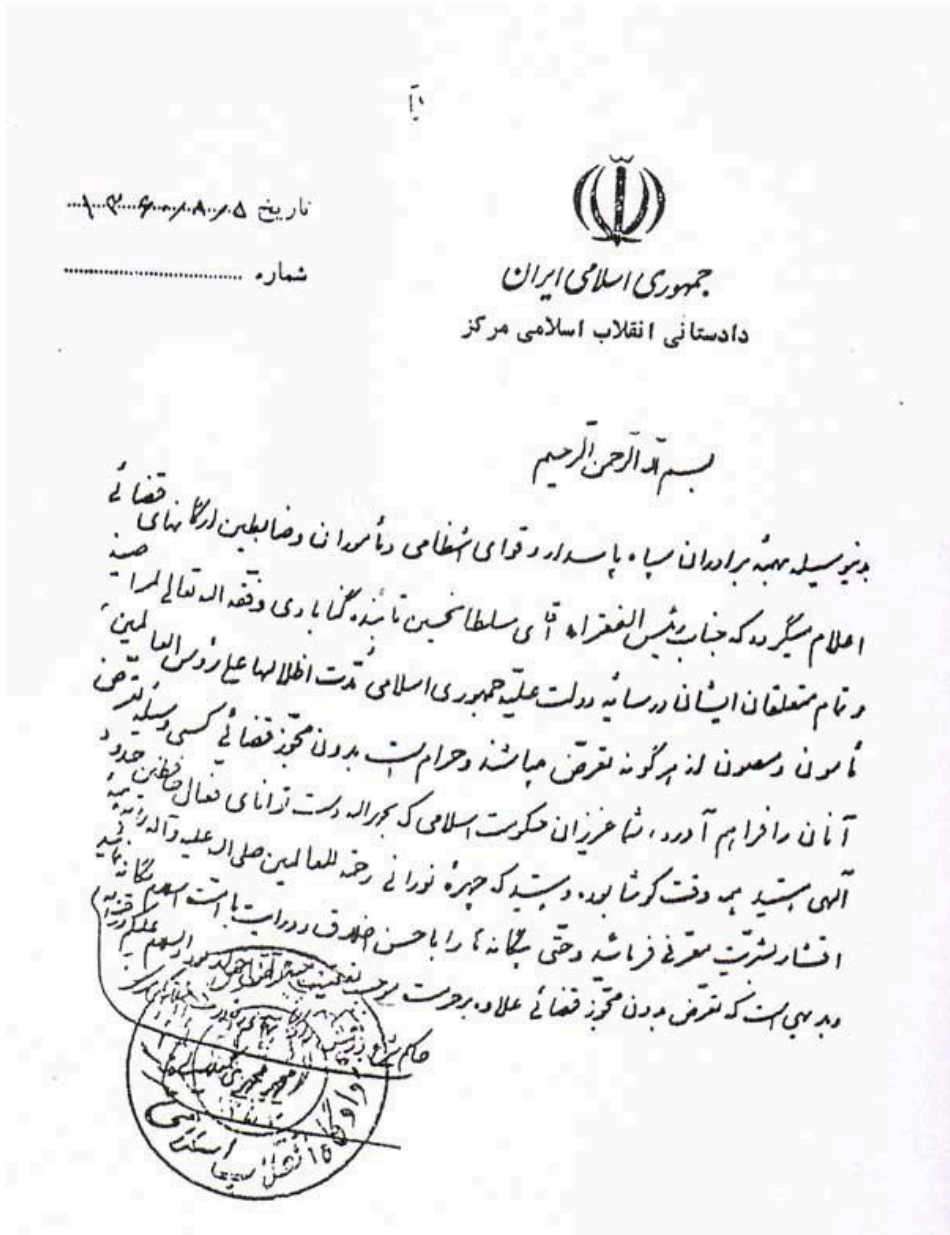 تاریخ ۱۳۶۰/۸/۵
شماره
جمهوری اسلامی ایران
دادستانی انقلاب اسلامی مرکز
بسم الله الرحمن الرحیم
بدینوسیله بهمهٔ برادران سپاه پاسدار و قوای انتظامی و مأموران و ضابطین ارگانهای قضائی
اعلام میگردد که جناب رئیس الفقراء آقای سلطانحسین تابنده گنابادی وفقه الله تعالی لمراضیه
و تمام متعلقان ایشان در سایهٔ دولت علیّه جمهوری اسلامی مُدّت اظلالها علی رؤس العالمین
مأمون و مصون از هرگونه تعرض میباشند و حرام است بدون مجوّز قضائی کسی وسیله تعرض
آنان را فراهم آورد، شما عزیزان حکومت اسلامی که بحمدالله دست توانای فعال حافظین حدود
آلهی هستید همه وقت کوشا بوده و هستید که چهرهٔ نورانی رحمة للعالمین صلی الله علیه و آله را
اقشار بشریت معرفی فرمائید و حتّی بیگانه را با حسن اخلاق و درایت
و بدیهی است که تعرض بدون مجوّز قضائی علاوه بر حرمت موجب تعقیب والسلام علیکم
حاکم شرع
دادگاه انقلاب اسلامی